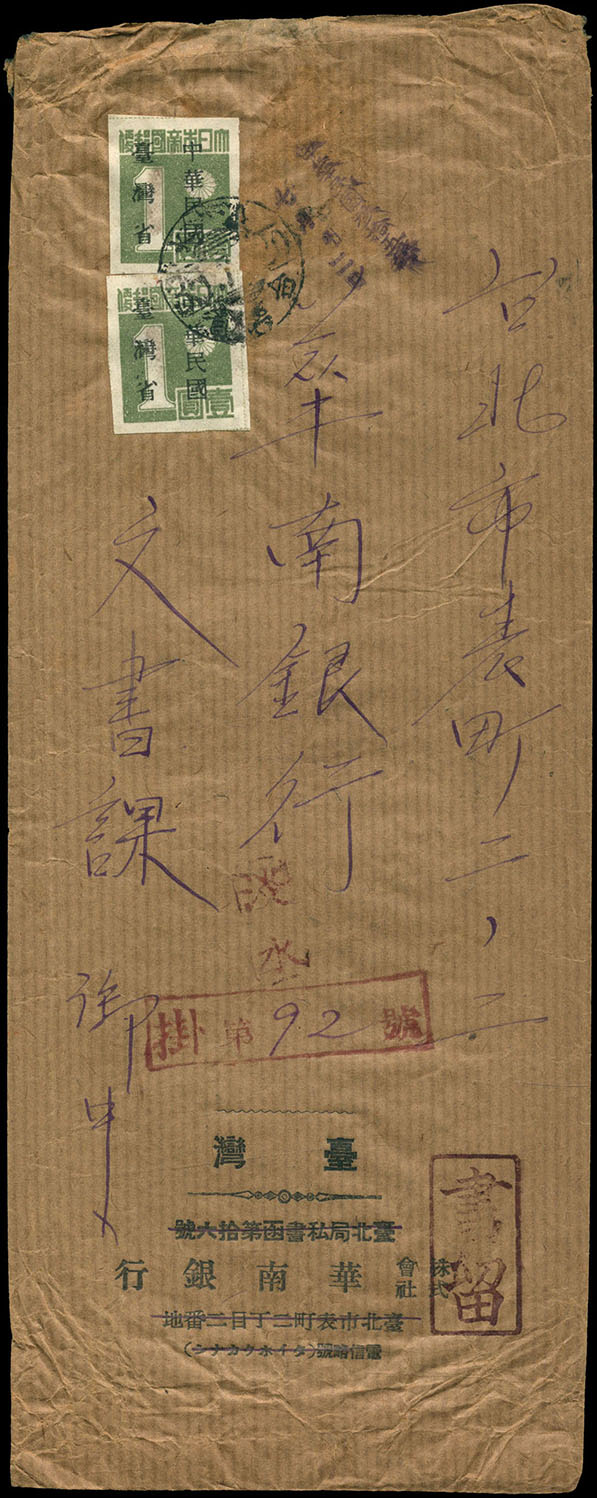 台北市表町二ノ二
華南銀行
文書課 御中
大日本帝國郵便
中華民國
臺灣省
1
壹圓
大日本帝國郵便
中華民國
臺灣省
1
壹圓
掛 第 92 號
書留
臺灣
臺北局私書函第拾六號
株式會社 華南銀行
臺北市表町二丁目二番地
電信略號(タイホクカナン)